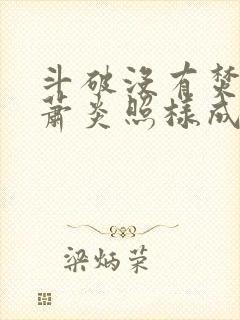 斗破没有焚
萧炎照样成
梁炳荣